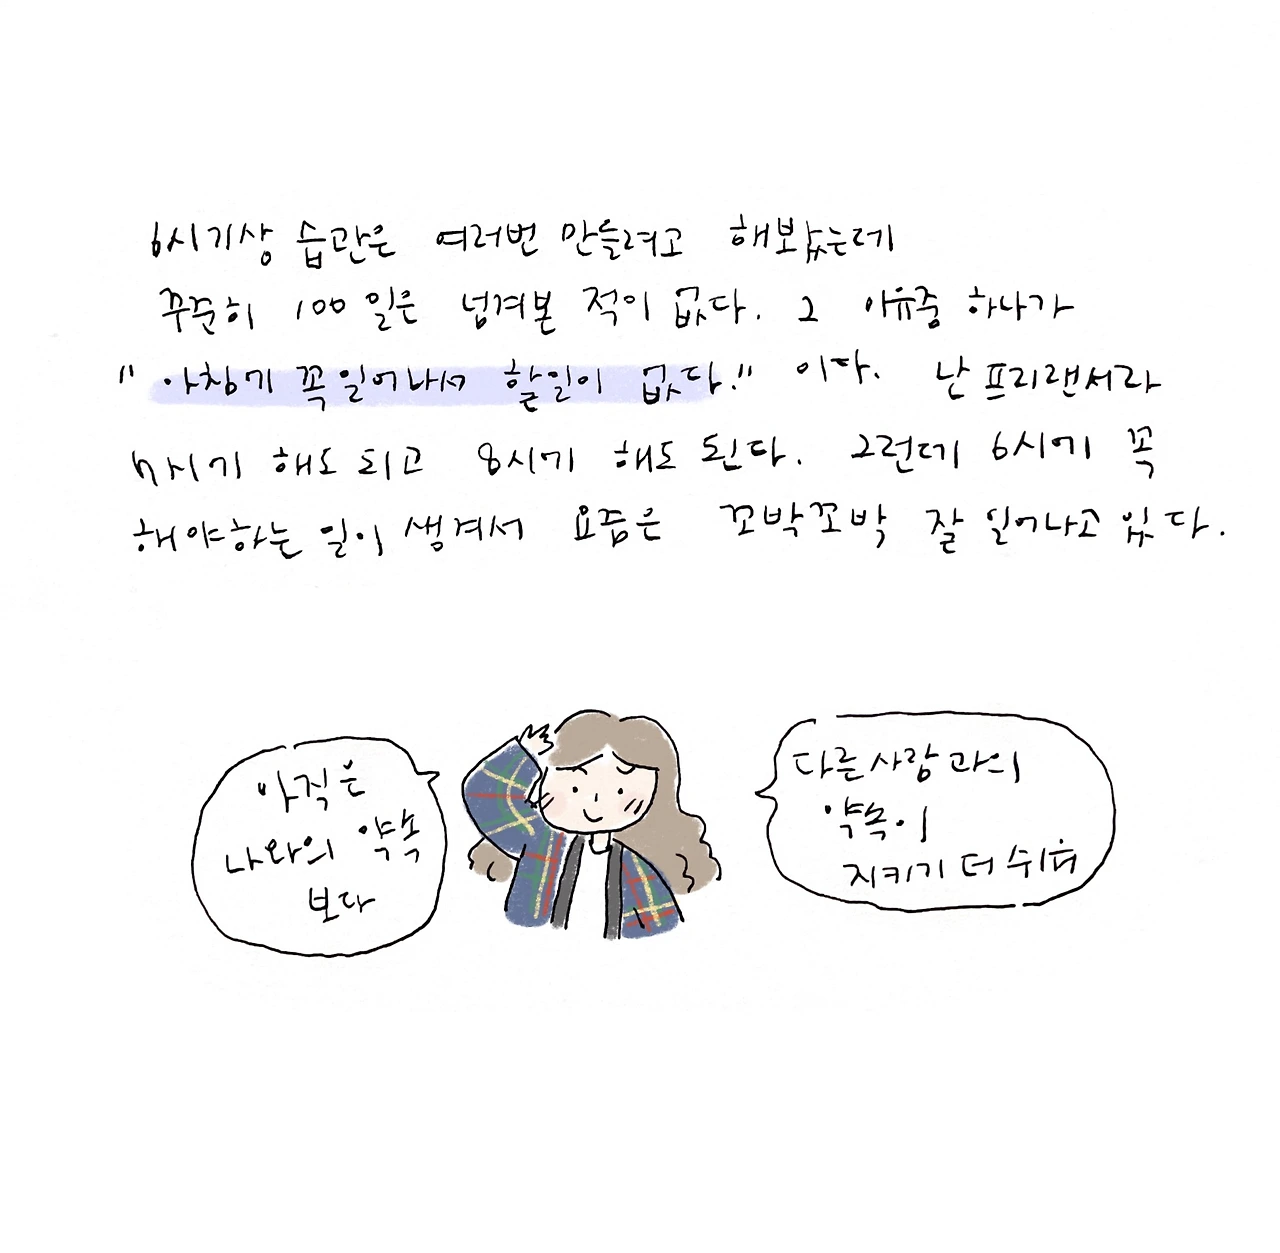 6시기상 습관은 여러번 만들려고 해보았는데
꾸준히 100일은 넘겨본 적이 없다. 그 이유중 하나가
"아침에 꼭 일어나서 할일이 없다." 이다. 난 프리랜서라
7시에 해도 되고 8시에 해도 된다. 그런데 6시에 꼭
해야하는 일이 생겨서 요즘은 꼬박꼬박 잘 일어나고 있다.
아직은
나와의 약속
보다
다른 사람과의
약속이
지키기 더 쉬워